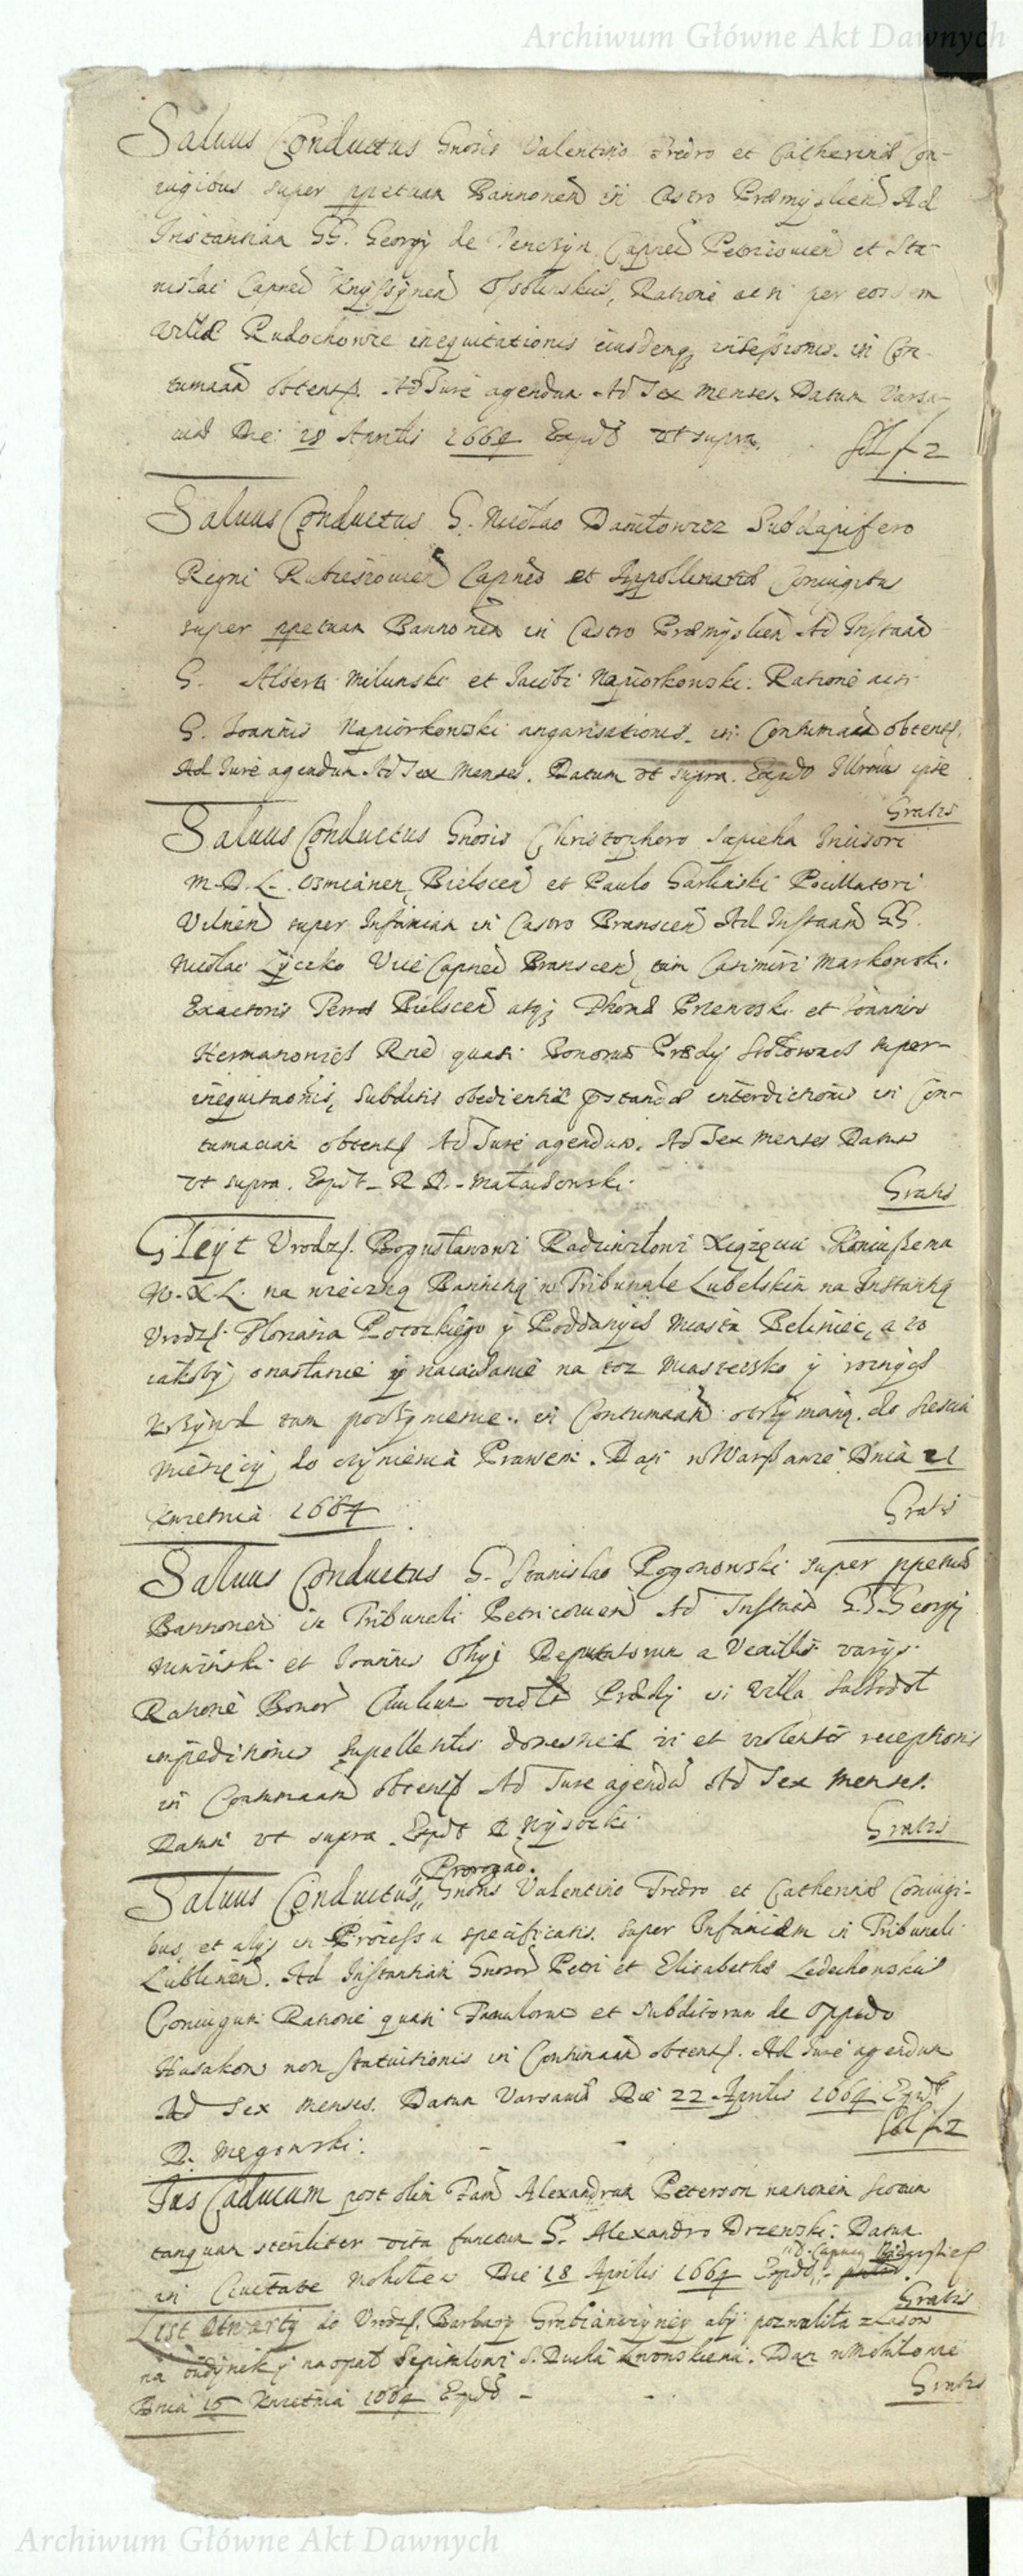 Archiwum Główne Akt Dawnych
Saluus Conductus Gnosis Valentino Fredro et Catherinæ Con-
iugibus super ppetuam Bannonem in Castro Præmyslien Ad
Instantiam GG. Georgy de Tenczyn Capnei Petricouien et Sta-
nislai Capnei Knyssynen Ossolinskich, Ratione acti per eosdem
villæ Rudochowce inequitationis eiusdemq intessionis in Con-
tumaam obtent. Ad Jure agendum Ad Sex Menses. Datum Varsa-
uiæ Die 18 Aprilis 1664 Expdt vt supra.
Sol f 2
Saluus Conductus G. Nicolao Daniłowicz Subdapifero
Regni Rubieszouien Capneo et Coniugibus
super ppetuam Bannonem in Castro Præmyslien Ad Instaam
G. Alberti Milunski et Jacobi Napiorkowski. Ratione acti
G. Joannis Napiorkowski angarisationis in Contumaam obtent.
Ad Jure agendum Ad Sex Menses. Datum vt supra. Expdt Illrmus ipse
Gratis
Saluus Conductus Gnosis Christophoro Sapieha Incisori
M.D.L. Osmianen, Bielscen et Paulo Garlinski Pocillatori
Vilnen super Infamiam in Castro Branscen Ad Instaam GG.
Nicolai Łyczko Vice Capnei Branscen, tum Casimiri Markowski
Exactoris Terræ Bielscen atq Thomæ Przewoski et Joannis
Hermanowicz Rne quasi Bonorum Prædy super-
inequitaonis, Subditis obedientiæ præstandæ interdictionis in Con-
tumaciam obtent Ad Jure agendum. Ad Sex Menses Datum
vt supra. Expdt R D.
Gratis
Gleyt Vrodz. Bogusławowi Radziwiłowi Xiążęciu Koniuszemu
W.X.L. na wieczną Bannitią w Tribunale Lubelskim na Instantią
Vrodz. Floriana Potockiego y Poddanych Miasta Beliniec, a to
iakoby o nasłanie y naiachanie na toz Miasteczko y roznych
Krzywd tam poczynienie in Contumaam otrzymaną do szesciu
Miesięcy do czynienia Prawem. Dan w Warszawie Dnia 21
Kwietnia 1664
Gratis
Saluus Conductus G. Stanislao Rogonowski super ppetuam
Bannonem in Tribunali Petricouien Ad Instaam GG Georgy
et Joannis Deputatorum a Vexillis varys
Ratione Bonor Prædy in Villa
impeditionis Supellectilis domesticæ vi et violenter receptionis
in Contumaam obtent Ad Jure agendum Ad Sex Menses.
Datum vt supra. Expdt D Wysocki
Gratis
Prorogao.
Saluus Conductus Gnosis Valentino Fredro et Catherinæ Coniugi-
bus et alys in Processu specificatis super Infamiam in Tribunali
Lublinen. Ad Instantiam Gnosor Petri et Elisabethæ Ledochowskich
Coniugum Ratione quasi Famulorum et Subditorum de Oppido
Husakow non statuitionis in Contumaam obtent. Ad Jure agendum
Ad Sex Menses. Datum Varsauiæ Die 22 Aprilis 1664 Expdt
D. Megowski
Sol f 2
Jus Caducum post olim Alexandrum Peterson nationem Scotum
tanquam steriliter vita functum G. Alexandro Drzewski. Datum
in Ciuitate Mohilew Die 18 Aprilis 1664 Expdt
Gratis
List Otwarty do Vrodz. Barbary aby pozwoliła z Lasow
na budynek y na opał Szpitalowi S. Ducha Lwowskiemu. Dan w Mohilowie
Dnia 15 Kwietnia 1664 Expdt
Gratis
Archiwum Główne Akt Dawnych